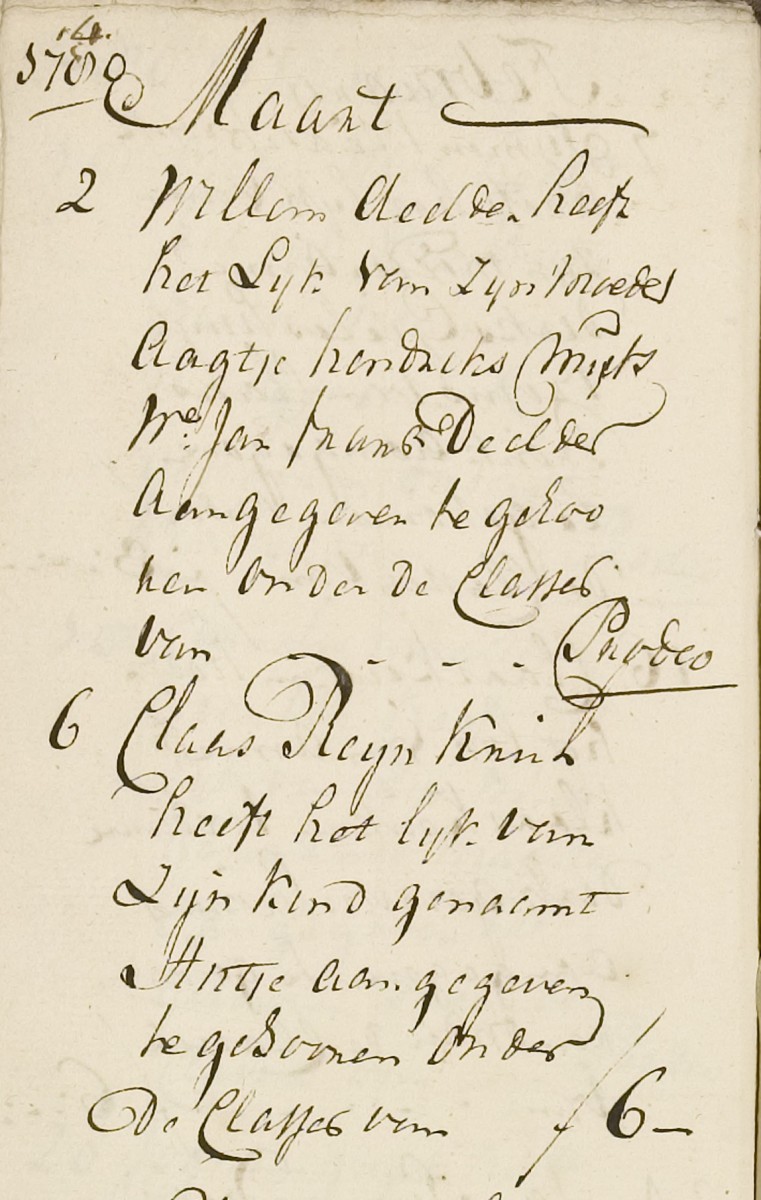 1789 Maart
2 Willem Deelder heeft
het Lyk van Zyn Moeder
Aagtje hendriks
We Jan frans Deelder
Aangegeven te gehoo
ren onder de Classes
van - - - - Pro deo
6 Claas Reyn
heeft het lyk van
Zijn kind genaamt
Antje aangegeven
te gehooren onder
De Classes van f 6-